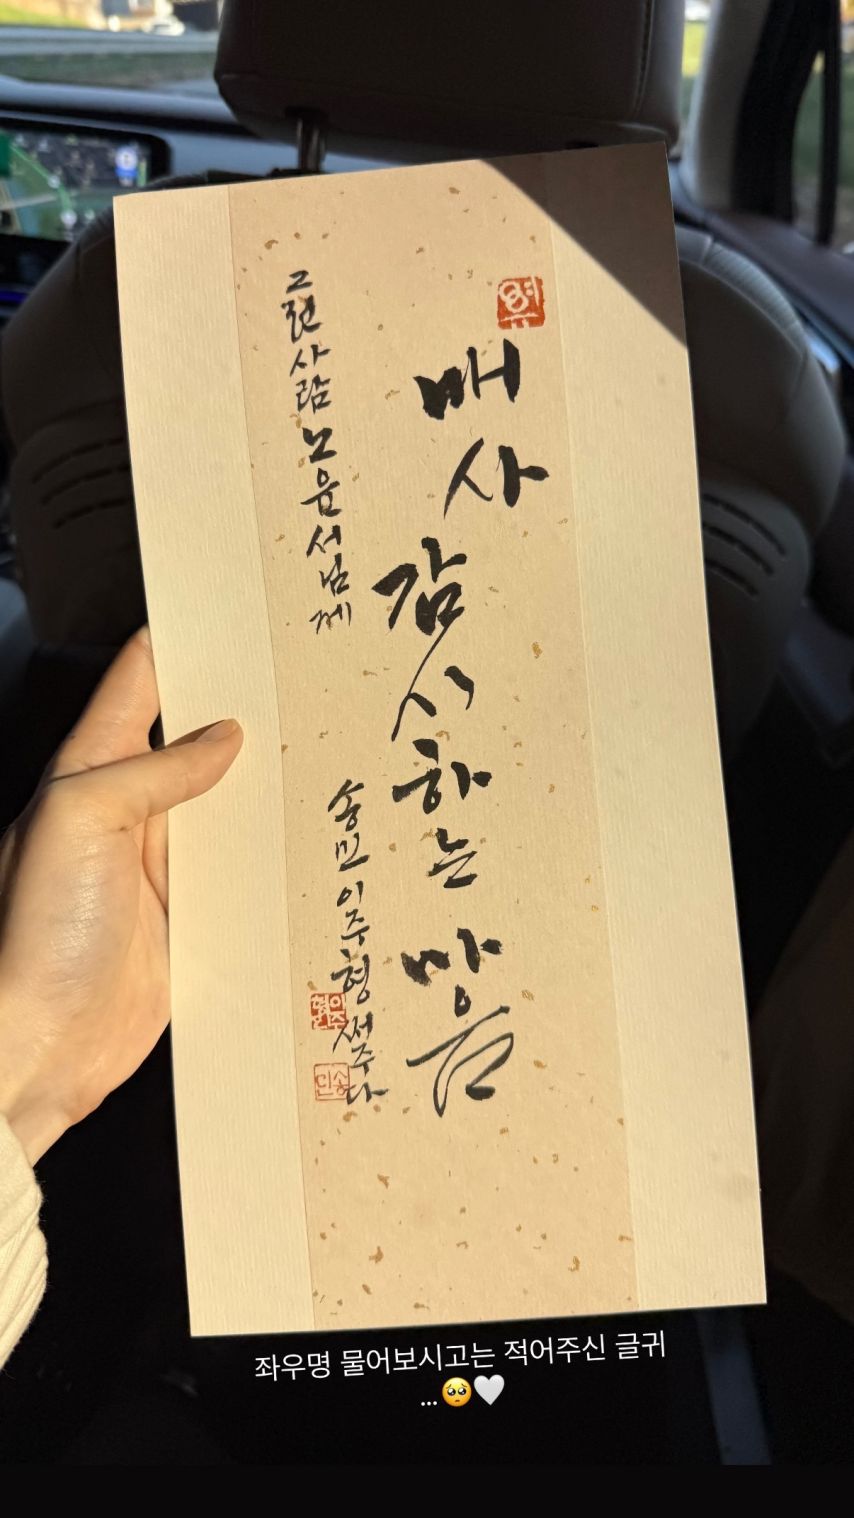 매사
감사하는
마음
그런사람 노윤서님께
송민 이주형 써주다
이주형
송민
좌우명 물어보시고는 적어주신 글귀
...🥺🤍